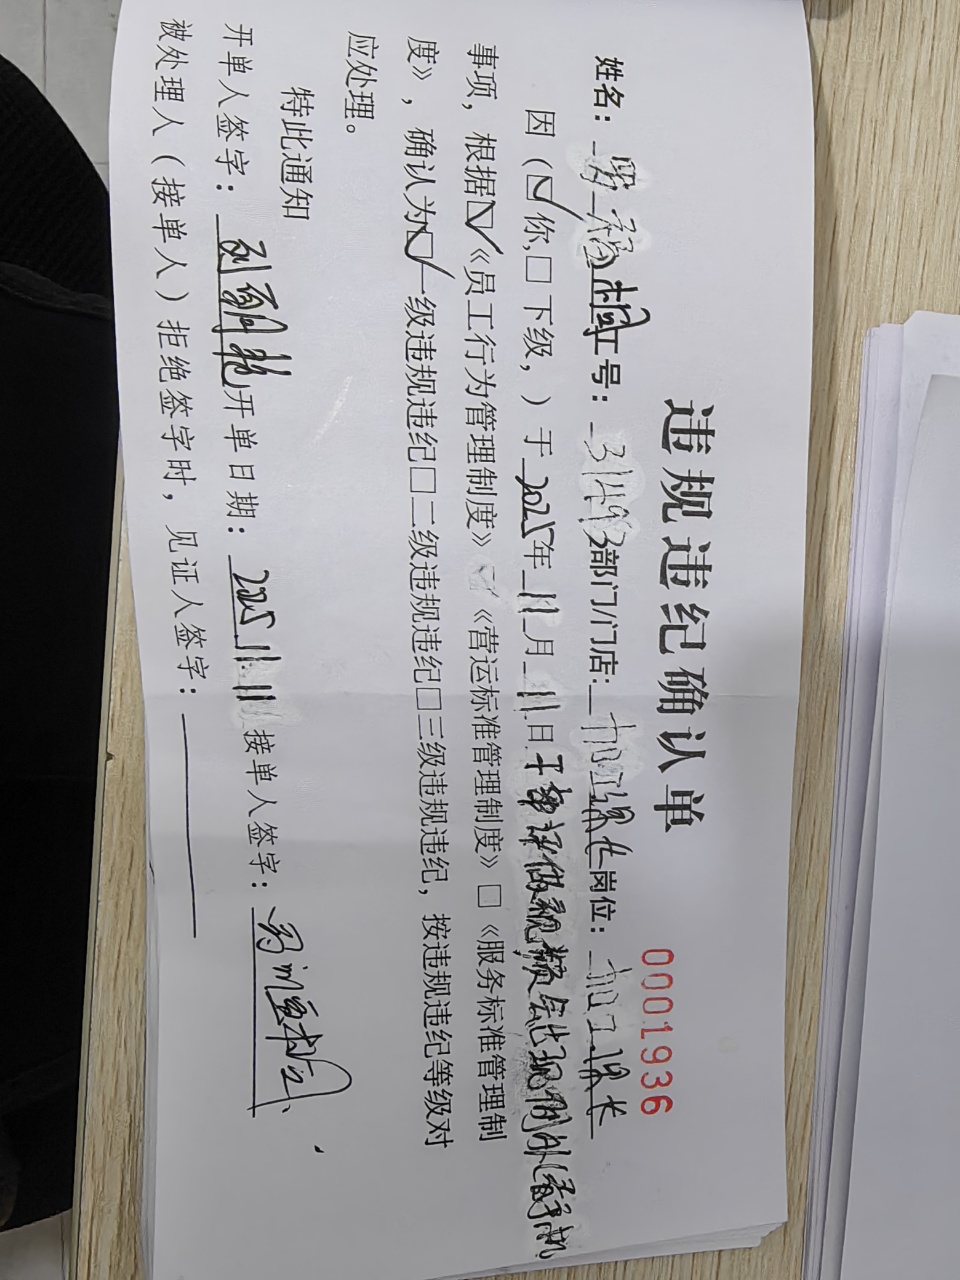 违规违纪确认单
0001936
姓名： 工号：31493部门/门店：加工课 岗位：加工课长
因（☑你,□下级，）于2025年11月11日
事项，根据☑《员工行为管理制度》☑《营运标准管理制度》□《服务标准管理制
度》，确认为☑一级违规违纪□二级违规违纪□三级违规违纪，按违规违纪等级对
应处理。
特此通知
开单人签字： 开单日期：2025.11.11接单人签字：
被处理人（接单人）拒绝签字时，见证人签字：